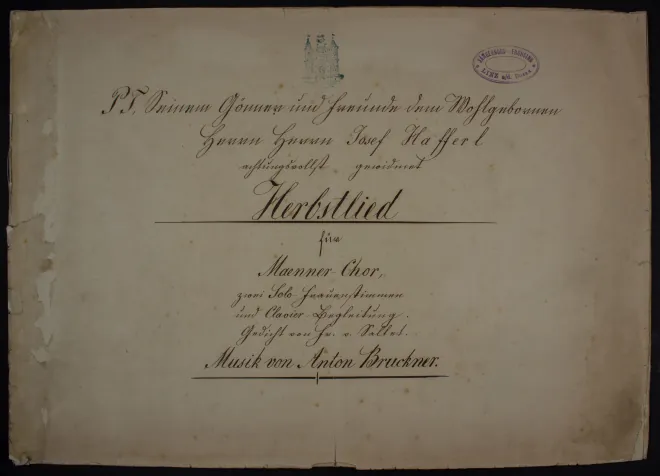 SÄNGERBUND "FROHSINN"
LINZ a/d. Donau
P.T. Seinem Gönner und Freunde dem Wohlgebornen
Herrn Herrn Josef Hafferl
achtungsvollst gewidmet
Herbstlied
für
Maenner-Chor,
zwei Solo-Frauenstimmen
und Clavier-Begleitung.
Gedicht von Fr. v. Sallet.
Musik von Anton Bruckner.